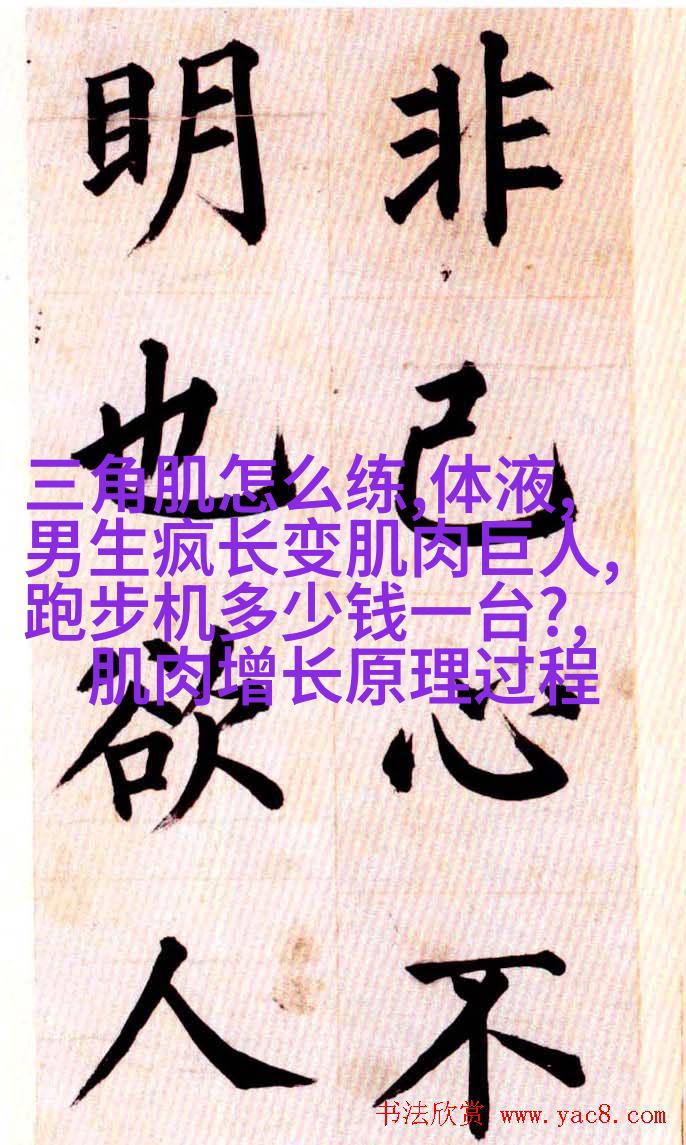 非己心不
明也欲人
三角肌怎么练,体液,
男生疯长变肌肉巨人,
跑步机多少钱一台?,
肌肉增长原理过程
书法欣赏 www.yac8.com